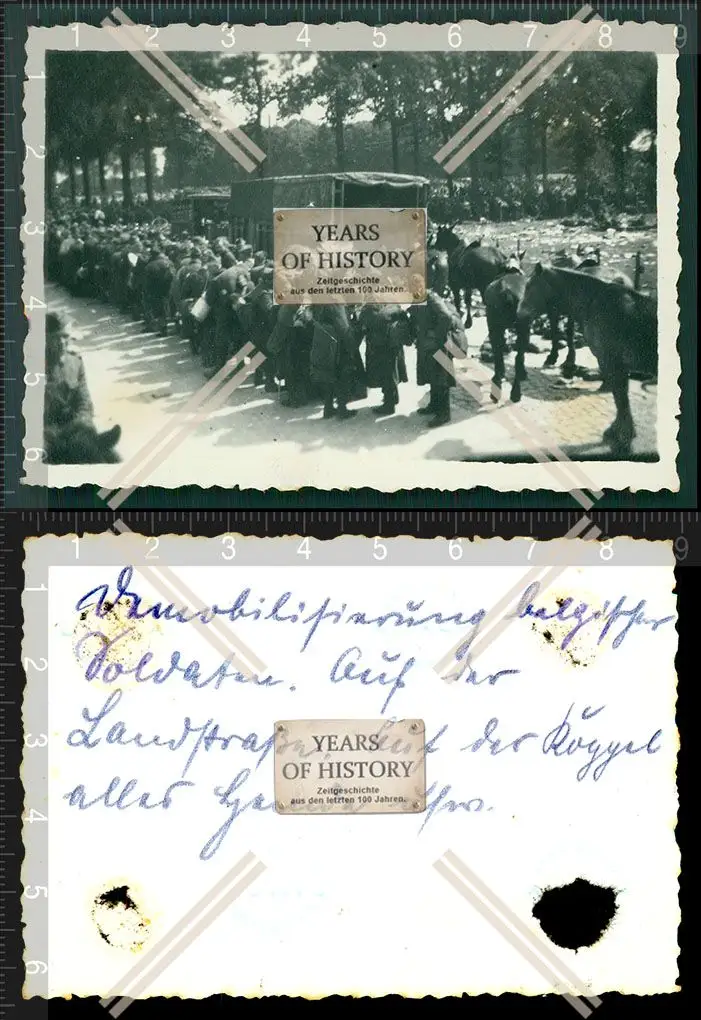 1 2 3 4 5 6 7 8 9
1
2
3
4
5
6
YEARS
OF HISTORY
Zeitgeschichte
aus den letzten 100 Jahren.
1 2 3 4 5 6 7 8 9
1
2
3
4
5
6
Demobilisierung belgischer
Soldaten. Auf der
Landstraße. der
aller
YEARS
OF HISTORY
Zeitgeschichte
aus den letzten 100 Jahren.